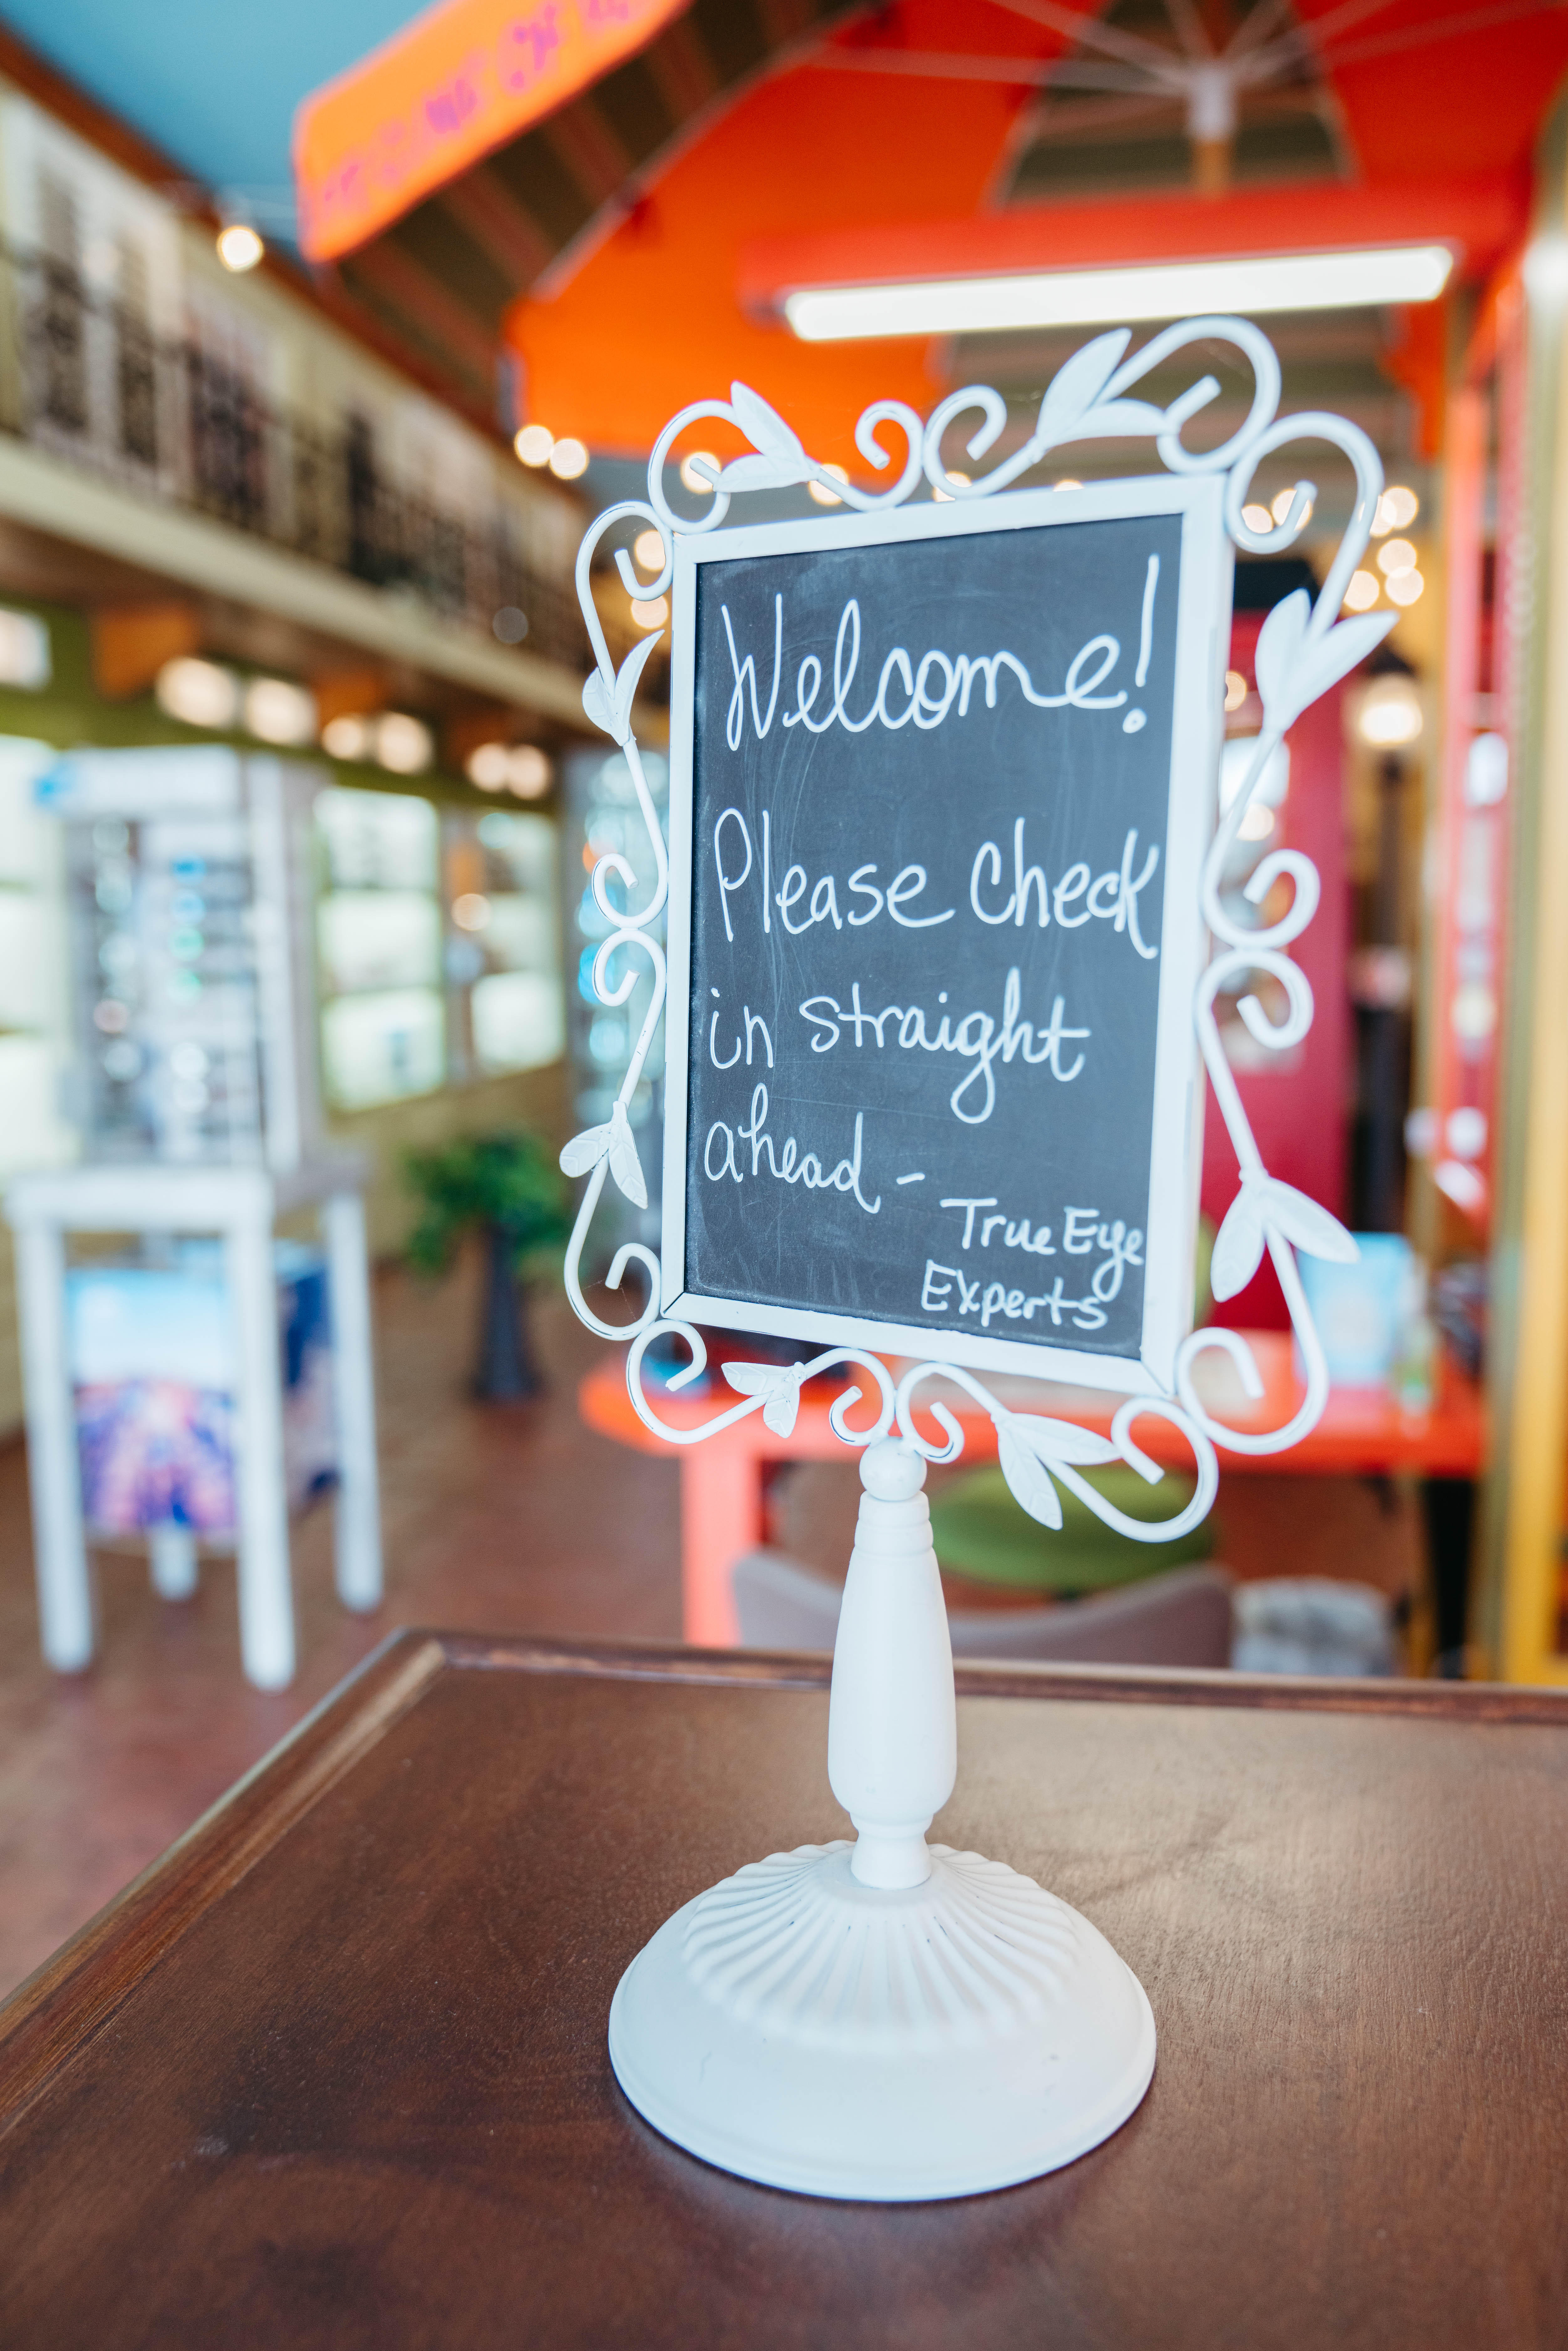 Welcome!
Please check
in straight
ahead -
True Eye
Experts